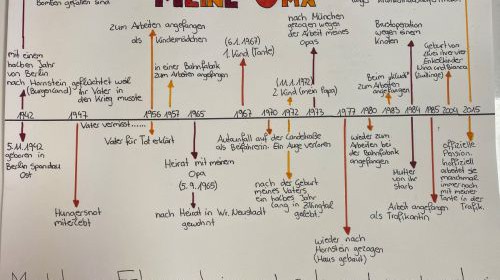 Bomben gefallen sind
MEINE OMA
mit einem
halben Jahr
von Berlin
nach Hornstein geflüchtet weil
(Burgenland)
ihr Vater in
den Krieg musste
zum Arbeiten angefangen
als Kindermädchen
in einer Bahnfabrik
zum Arbeiten angefangen
(6.1.1967)
1. Kind (Tante)
nach München
gezogen wegen
der Arbeit meines
Opas
(11.1.1972)
2. Kind (mein Papa)
Brustoperation
wegen einem
Knoten
Beim
zum Arbeiten
angefangen
Geburt von
ihrer vier
Enkelkinder
(Zwillinge)
1942
1947
1956
1957
1965
1967
1970
1972
1973
1977
1980
1983
1984
1985
2004
2015
5.11.1942
geboren in
Berlin Spandau
Ost
Vater vermisst
Vater für Tot erklärt
Hungersnot
miterlebt
Heirat mit meinem
Opa
(5.9.1965)
nach Heirat in Wr. Neustadt
gewohnt
Autounfall auf der Landstraße
als Beifahrerin. Ein Auge verloren
nach der Geburt
meines Vaters
ein halbes Jahr
lang in Zillingtal
gelebt
wieder nach
Hornstein gezogen
(Haus gebaut)
wieder zum
Arbeiten bei
der Bahnfabrik
angefangen
Mutter
von ihr
starb
Arbeit angefangen
als Trafikantin
offizielle
Pension.
Inoffiziell
arbeitet sie
manchmal
immer noch
mit meiner
Tante in der
Trafik.